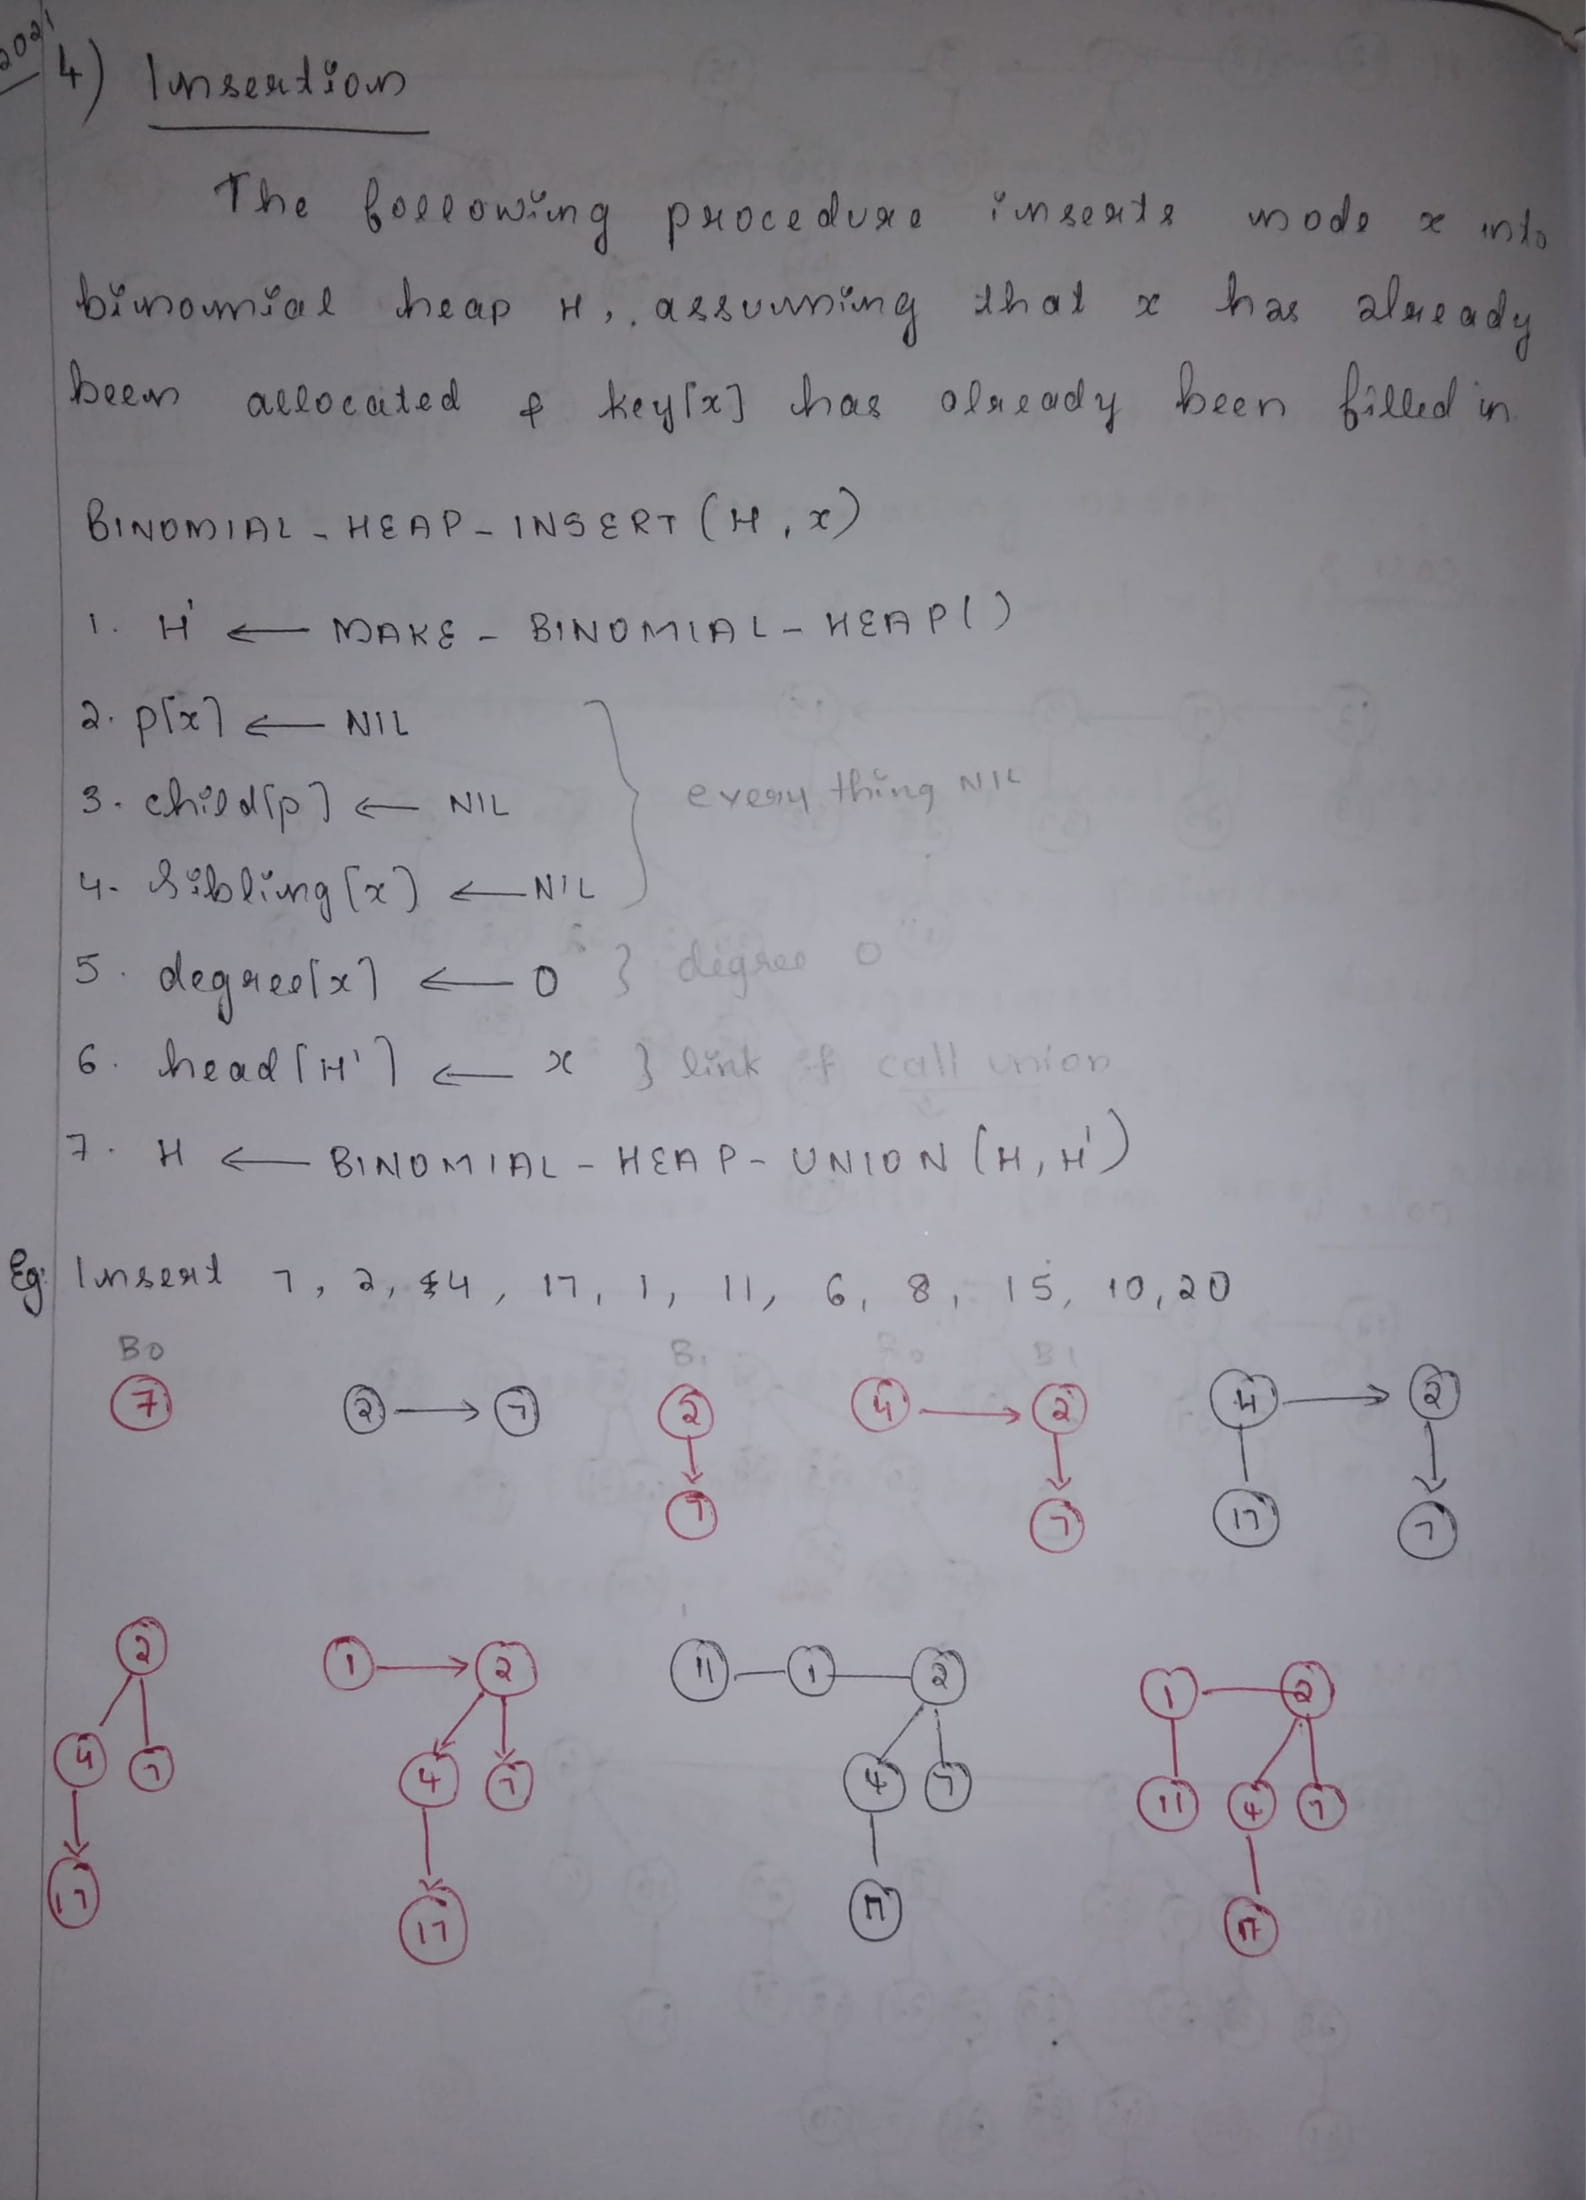 2021
4) Insertion
The following procedure inserts node x into
binomial heap H, assuming that x has already
been allocated & key[x] has already been filled in
BINOMIAL-HEAP-INSERT(H, x)
1. H' ← MAKE-BINOMIAL-HEAP()
2. p[x] ← NIL
3. child[p] ← NIL } every thing NIL
4. Sibling[x] ← NIL
5. degree[x] ← 0 } degree 0
6. head[H'] ← x } link & call union
7. H ← BINOMIAL-HEAP-UNION(H, H')
Eg: Insert 7, 2, 4, 17, 1, 11, 6, 8, 15, 10, 20
B0 B1 B0 B1
7 2 → 7 2 4 → 2 4 → 2
7 7 17 7
2 1 → 2 11 1 2 1 2
4 7 4 7 4 7 11 4 7
17 17 17 17